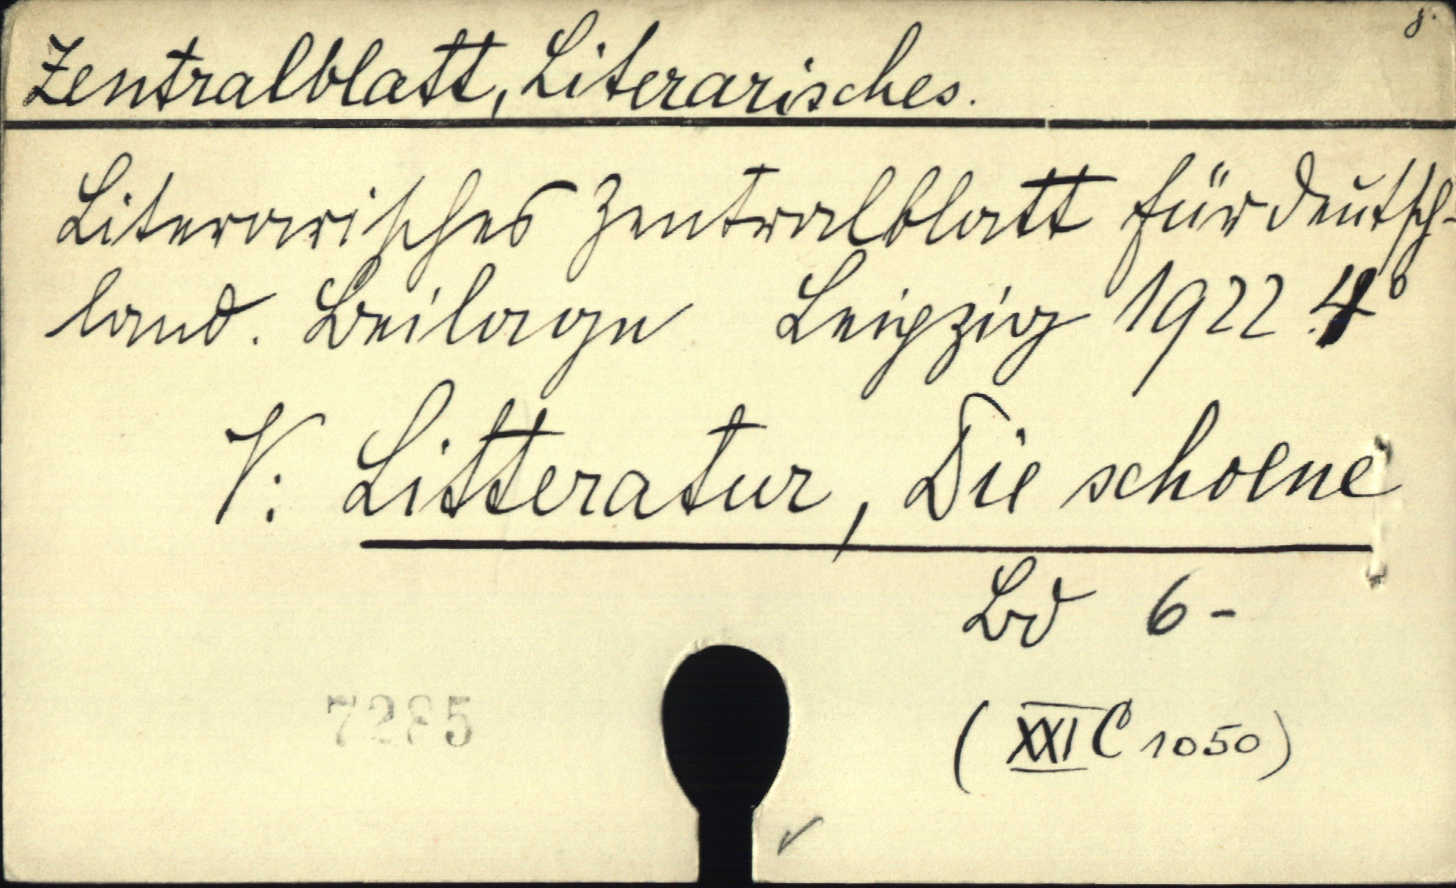 8.
Zentralblatt, Literarisches.
Literarisches Zentralblatt für Deutsch-
land. Beilage Leipzig 1922 4°
V: Litteratur, Die schoene
Bd 6-
(XXI C 1050)
7285